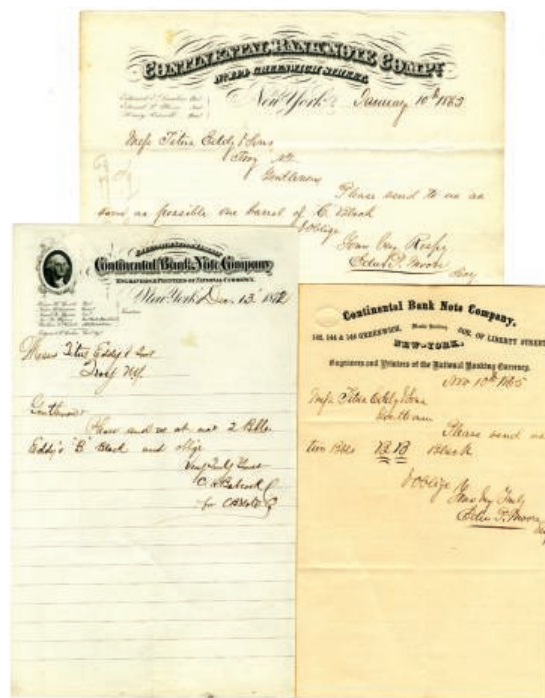 CONTINENTAL BANK NOTE COMPY.
GREENWICH STREET.
New York January 10th 1863
Mess Titus Eddy & Sons
Troy
Gentlemen
Please send to us as
soon as possible one barrel of C. Black
& oblige
Yours Very Respy
Edwd P. Moore
Secy
Continental Bank Note Company
ENGRAVERS & PRINTERS OF NATIONAL CURRENCY.
New York, Dec 13 1872
Messrs Titus Eddy & Sons
Troy N.Y.
Gentlemen
Please send us at once 2 Bbls
Eddy's "B" Black and oblige
Yours Truly
for
Continental Bank Note Company,
142, 144 & 146 GREENWICH, COR. OF LIBERTY STREET
NEW-YORK.
Engravers and Printers of the National Banking Currency.
Nov 10th 1865
Mess Titus Eddy & Sons
Gentlemen
Please send us
two Bbls BB Black
& oblige
Yours Very Truly
Edwd P. Moore